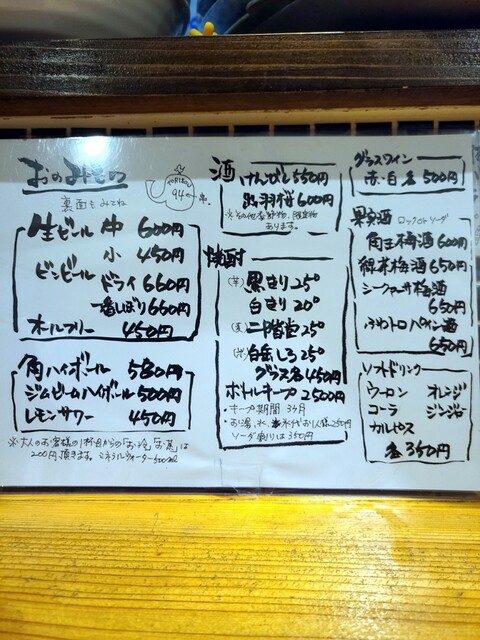 おのみもの
裏面もみてね
TORIKOU
94
生ビール 中 600円
小 450円
ビンビール ドライ 660円
一番しぼり 660円
オールフリー 450円
角ハイボール 580円
ジムビームハイボール 500円
レモンサワー 450円
※大人のお客様の1杯目からの「お冷」「お茶」は
200円頂きます。ミネラルウォーター500ml
酒
けんびし 550円
出羽桜 600円
※その他季節物、限定物
あります。
焼酎
(芋) 黒きり 25°
白きり 20°
(麦) 二階堂 25°
(米) 白岳しろ 25°
グラス各 450円
ボトルキープ 2500円
・キープ期間 3ヶ月
・お湯、水、お1人様250円
ソーダ割りは350円
グラスワイン
赤・白 各 500円
果実酒 ロックorソーダ
梅酒 600円
緑茶梅酒 650円
シークァーサー梅酒
650円
ふわトロパイン酒
650円
ソフトドリンク
ウーロン オレンジ
コーラ ジンジャー
カルピス
各 350円